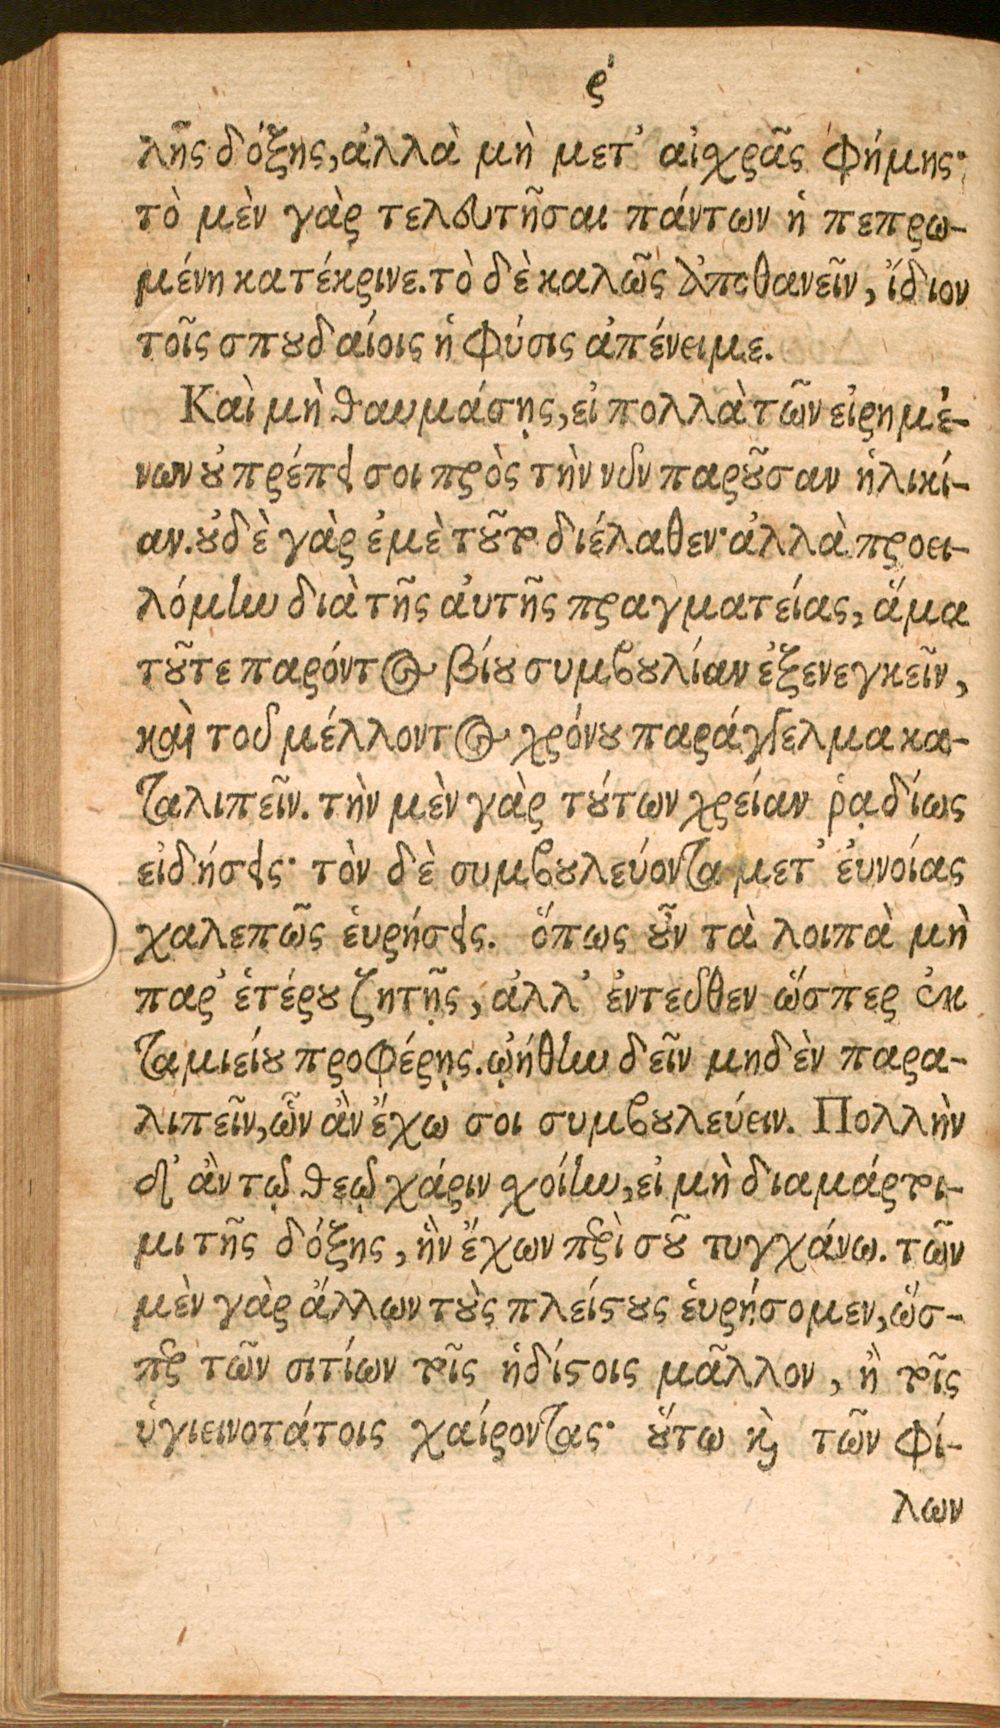 ρ΄
λῆς δόξης, ἀλλὰ μὴ μετ᾽ αἰχρᾶς φήμης·
τὸ μὲν γὰρ τελευτῆσαι πάντων ἡ πεπρω-
μένη κατέκρινε. τὸ δὲ καλῶς ἀποθανεῖν, ἴδιον
τοῖς σπουδαίοις ἡ φύσις ἀπένειμε.
Καὶ μὴ θαυμάσῃς, εἰ πολλὰ τῶν εἰρημέ-
νων οὐ πρέπει σοι πρὸς τὴν νῦν παροῦσαν ἡλικί-
αν. οὐδὲ γὰρ ἐμὲ τοῦτο διέλαθεν· ἀλλὰ προει-
λόμην διὰ τῆς ἀυτῆς πραγματείας, ἅμα
τοῦτε παρόντος βίου συμβουλίαν ἐξενεγκεῖν,
καὶ τοῦ μέλλοντος χρόνου παράγγελμα κα-
ταλιπεῖν. τὴν μὲν γὰρ τούτων χρείαν ῥᾳδίως
εἰδήσεις· τὸν δὲ συμβουλεύοντα μετ᾽ ἐυνοίας
χαλεπῶς ἑυρήσεις. ὅπως οὖν τὰ λοιπὰ μὴ
παρ᾽ ἑτέρου ζητῇς, ἀλλ᾽ ἐντεῦθεν ὥσπερ ἐκ
ταμιείου προφέρῃς. ᾠήθην δεῖν μηδὲν παρα-
λιπεῖν, ὧν ἂν ἔχω σοι συμβουλεύειν. Πολλὴν
δ᾽ ἂν τῷ θεῷ χάριν χοίην, εἰ μὴ διαμάρτοι-
μι τῆς δόξης, ἣν ἔχων περὶ σοῦ τυγχάνω. τῶν
μὲν γὰρ ἄλλων τοὺς πλείστους ἑυρήσομεν, ὥσ-
περ τῶν σιτίων τοῖς ἡδίστοις μᾶλλον, ἢ τοῖς
ὑγιεινοτάτοις χαίροντας· οὕτω καὶ τῶν φί-
λων